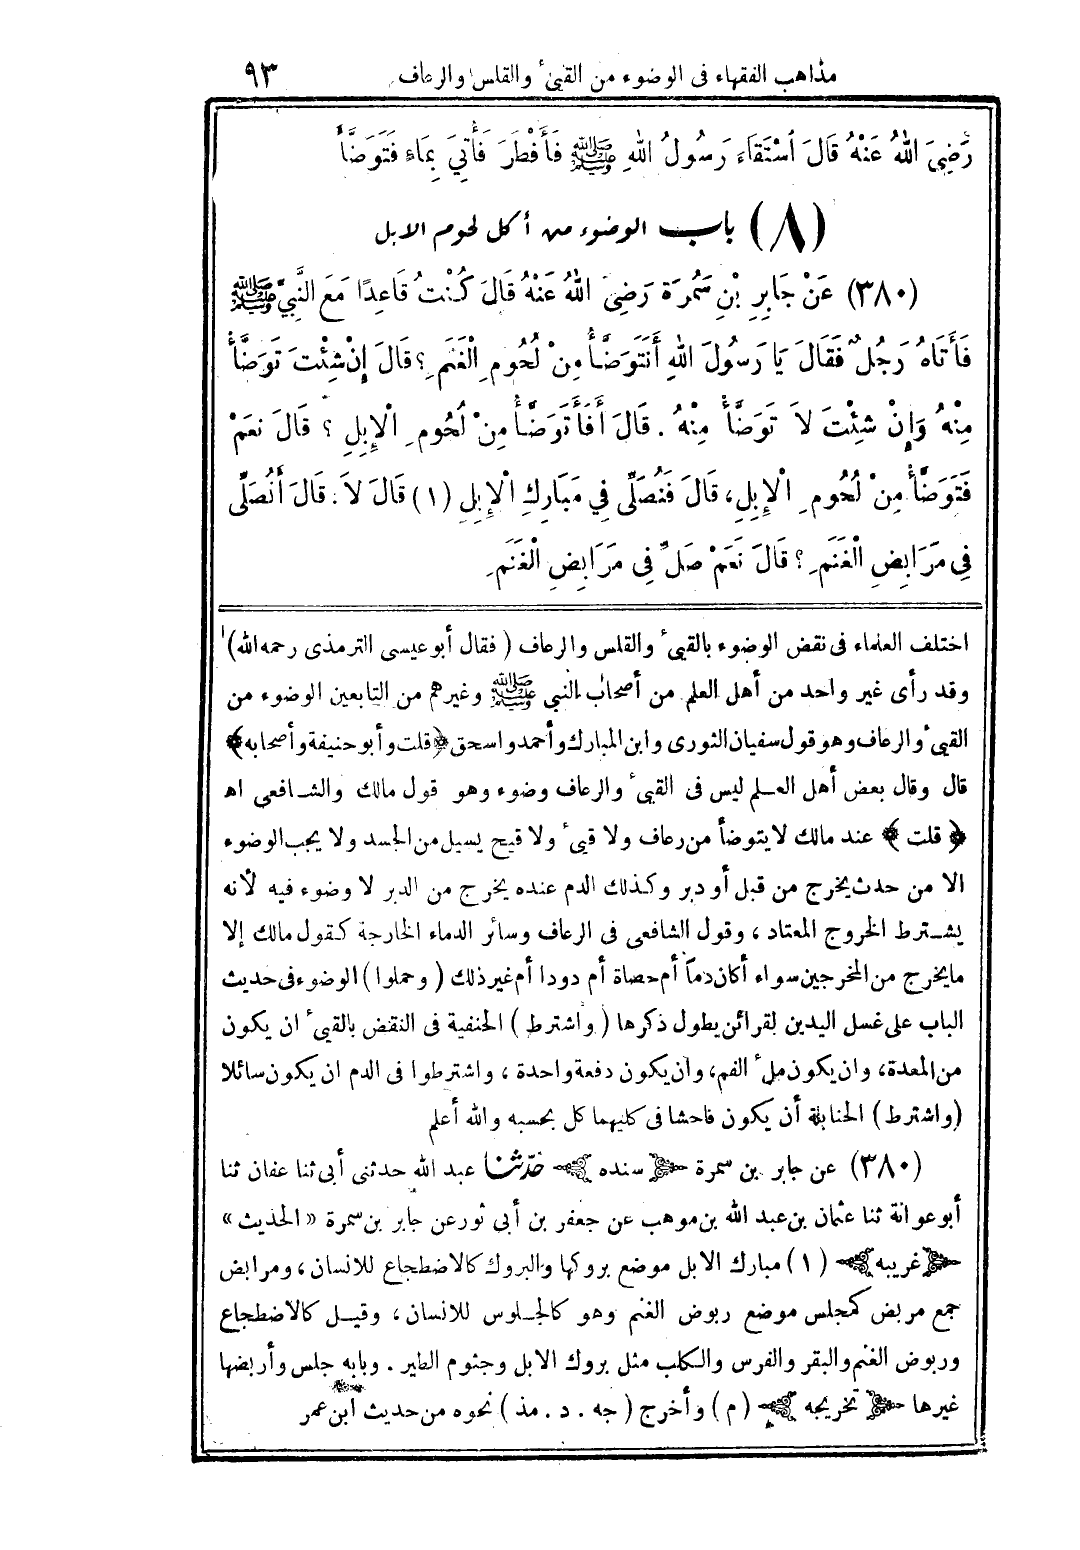 مذاهب الفقهاء فى الوضوء من القيئ والقلس والرعاف ٩٣
رَضِيَ اللهُ عَنْهُ قَالَ اُسْتَقَاءَ رَسُولُ اللهِ ﷺ فَأَفْطَرَ فَأُتِيَ بِمَاءٍ فَتَوَضَّأَ
(٨) باب الوضوء من أكل لحوم الابل
(٣٨٠) عَنْ جَابِرِ بْنِ سَمُرَةَ رَضِيَ اللهُ عَنْهُ قَالَ كُنْتُ قَاعِدًا مَعَ النَّبِيِّ ﷺ
فَأَتَاهُ رَجُلٌ فَقَالَ يَا رَسُولَ اللهِ أَنَتَوَضَّأُ مِنْ لُحُومِ الْغَنَمِ ؟ قَالَ إِنْ شِئْتَ تَوَضَّأْ
مِنْهُ وَإِنْ شِئْتَ لاَ تَوَضَّأْ مِنْهُ . قَالَ أَفَأَتَوَضَّأُ مِنْ لُحُومِ الْإِبِلِ ؟ قَالَ نَعَمْ
فَتَوَضَّأْ مِنْ لُحُومِ الْإِبِلِ، قَالَ فَنُصَلِّى فِي مَبَارِكِ الْإِبِلِ (١) قَالَ لاَ . قَالَ أَنُصَلِّى
فِي مَرَابِضِ الْغَنَمِ ؟ قَالَ نَعَمْ صَلِّ فِي مَرَابِضِ الْغَنَمِ
اختلف العلماء فى نقض الوضوء بالقيئ والقلس والرعاف ( فقال أبو عيسى الترمذى رحمه الله)
وقد رأى غير واحد من أهل العلم من أصحاب النبي ﷺ وغيرهم من التابعين الوضوء من
القيئ والرعاف وهو قول سفيان الثورى وابن المبارك وأحمد واسحق ﴿قلت وأبو حنيفة وأصحابه﴾
قال وقال بعض أهل العلم ليس فى القيئ والرعاف وضوء وهو قول مالك والشافعى اهـ
﴿ قلت ﴾ عند مالك لا يتوضأ من رعاف ولا قيئ ولا قيح يسيل من الجسد ولا يجب الوضوء
الا من حدث يخرج من قبل أو دبر وكذلك الدم عنده يخرج من الدبر لا وضوء فيه لأنه
يشترط الخروج المعتاد ، وقول الشافعى فى الرعاف وسائر الدماء الخارجة كقول مالك إلا
ما يخرج من المخرجين سواء أكان دماً أم حصاة أم دودا أم غير ذلك ( وحملوا ) الوضوء فى حديث
الباب على غسل اليدين لقرائن يطول ذكرها ( واشترط ) الحنفية فى النقض بالقيئ ان يكون
من المعدة، وان يكون ملأ الفم، وان يكون دفعة واحدة ، واشترطوا فى الدم ان يكون سائلا
(واشترط) الحنابلة أن يكون فاحشا فى كليهما كل بحسبه والله أعلم
(٣٨٠) عن جابر بن سمرة ﴿ سنده ﴾ حدثنا عبد الله حدثنى أبى ثنا عفان ثنا
أبو عوانة ثنا عثمان بن عبد الله بن موهب عن جعفر بن أبى ثور عن جابر بن سمرة «الحديث»
﴿ غريبه ﴾ (١) مبارك الابل موضع بروكها والبروك كالاضطجاع للانسان ، ومرابض
جمع مربض كمجلس موضع ربوض الغنم وهو كالجلوس للانسان ، وقيل كالاضطجاع
وربوض الغنم والبقر والفرس والكلب مثل بروك الابل وجثوم الطير . وبابه جلس وأربضها
غيرها ﴿ تخريجه ﴾ (م) وأخرج (جه . د . مذ) نحوه من حديث ابن عمر